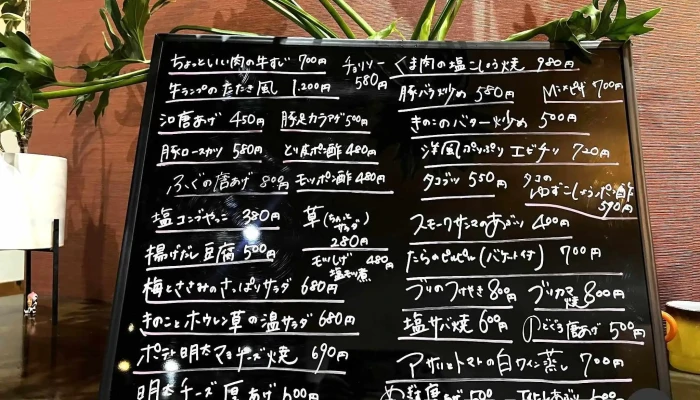 ちょっといい肉の牛すじ 700円
牛ランプのたたき風 1,200円
唐あげ 450円
豚足カラアゲ 500円
豚ロースカツ 580円
とり皮ポン酢 480円
ふぐの唐あげ 800円
モツポン酢 480円
塩コンブやっこ 380円
草(ちょっとサラダ)
280円
揚げだし豆腐 500円
480円
塩モツ煮
梅とささみのさっぱりサラダ 680円
きのことホウレン草の温サラダ 680円
ポテト明太マヨチーズ焼 690円
明太チーズ厚あげ 600円
チョリソー
580円
肉の塩こしょう焼 980円
豚バラ炒め 580円
Mixピザ 700円
きのこのバター炒め 500円
洋風ぷりぷりエビチリ 720円
タコブツ 550円
タコの
ゆずこしょうポン酢
590円
スモークサンマのあぶり 400円
たらのピルピル(バケット付) 700円
ブリのつけやき 800円
ブリカマ
焼 800円
塩サバ焼 600円
のどぐろ唐あげ 500円
アサリとトマトの白ワイン蒸し 700円